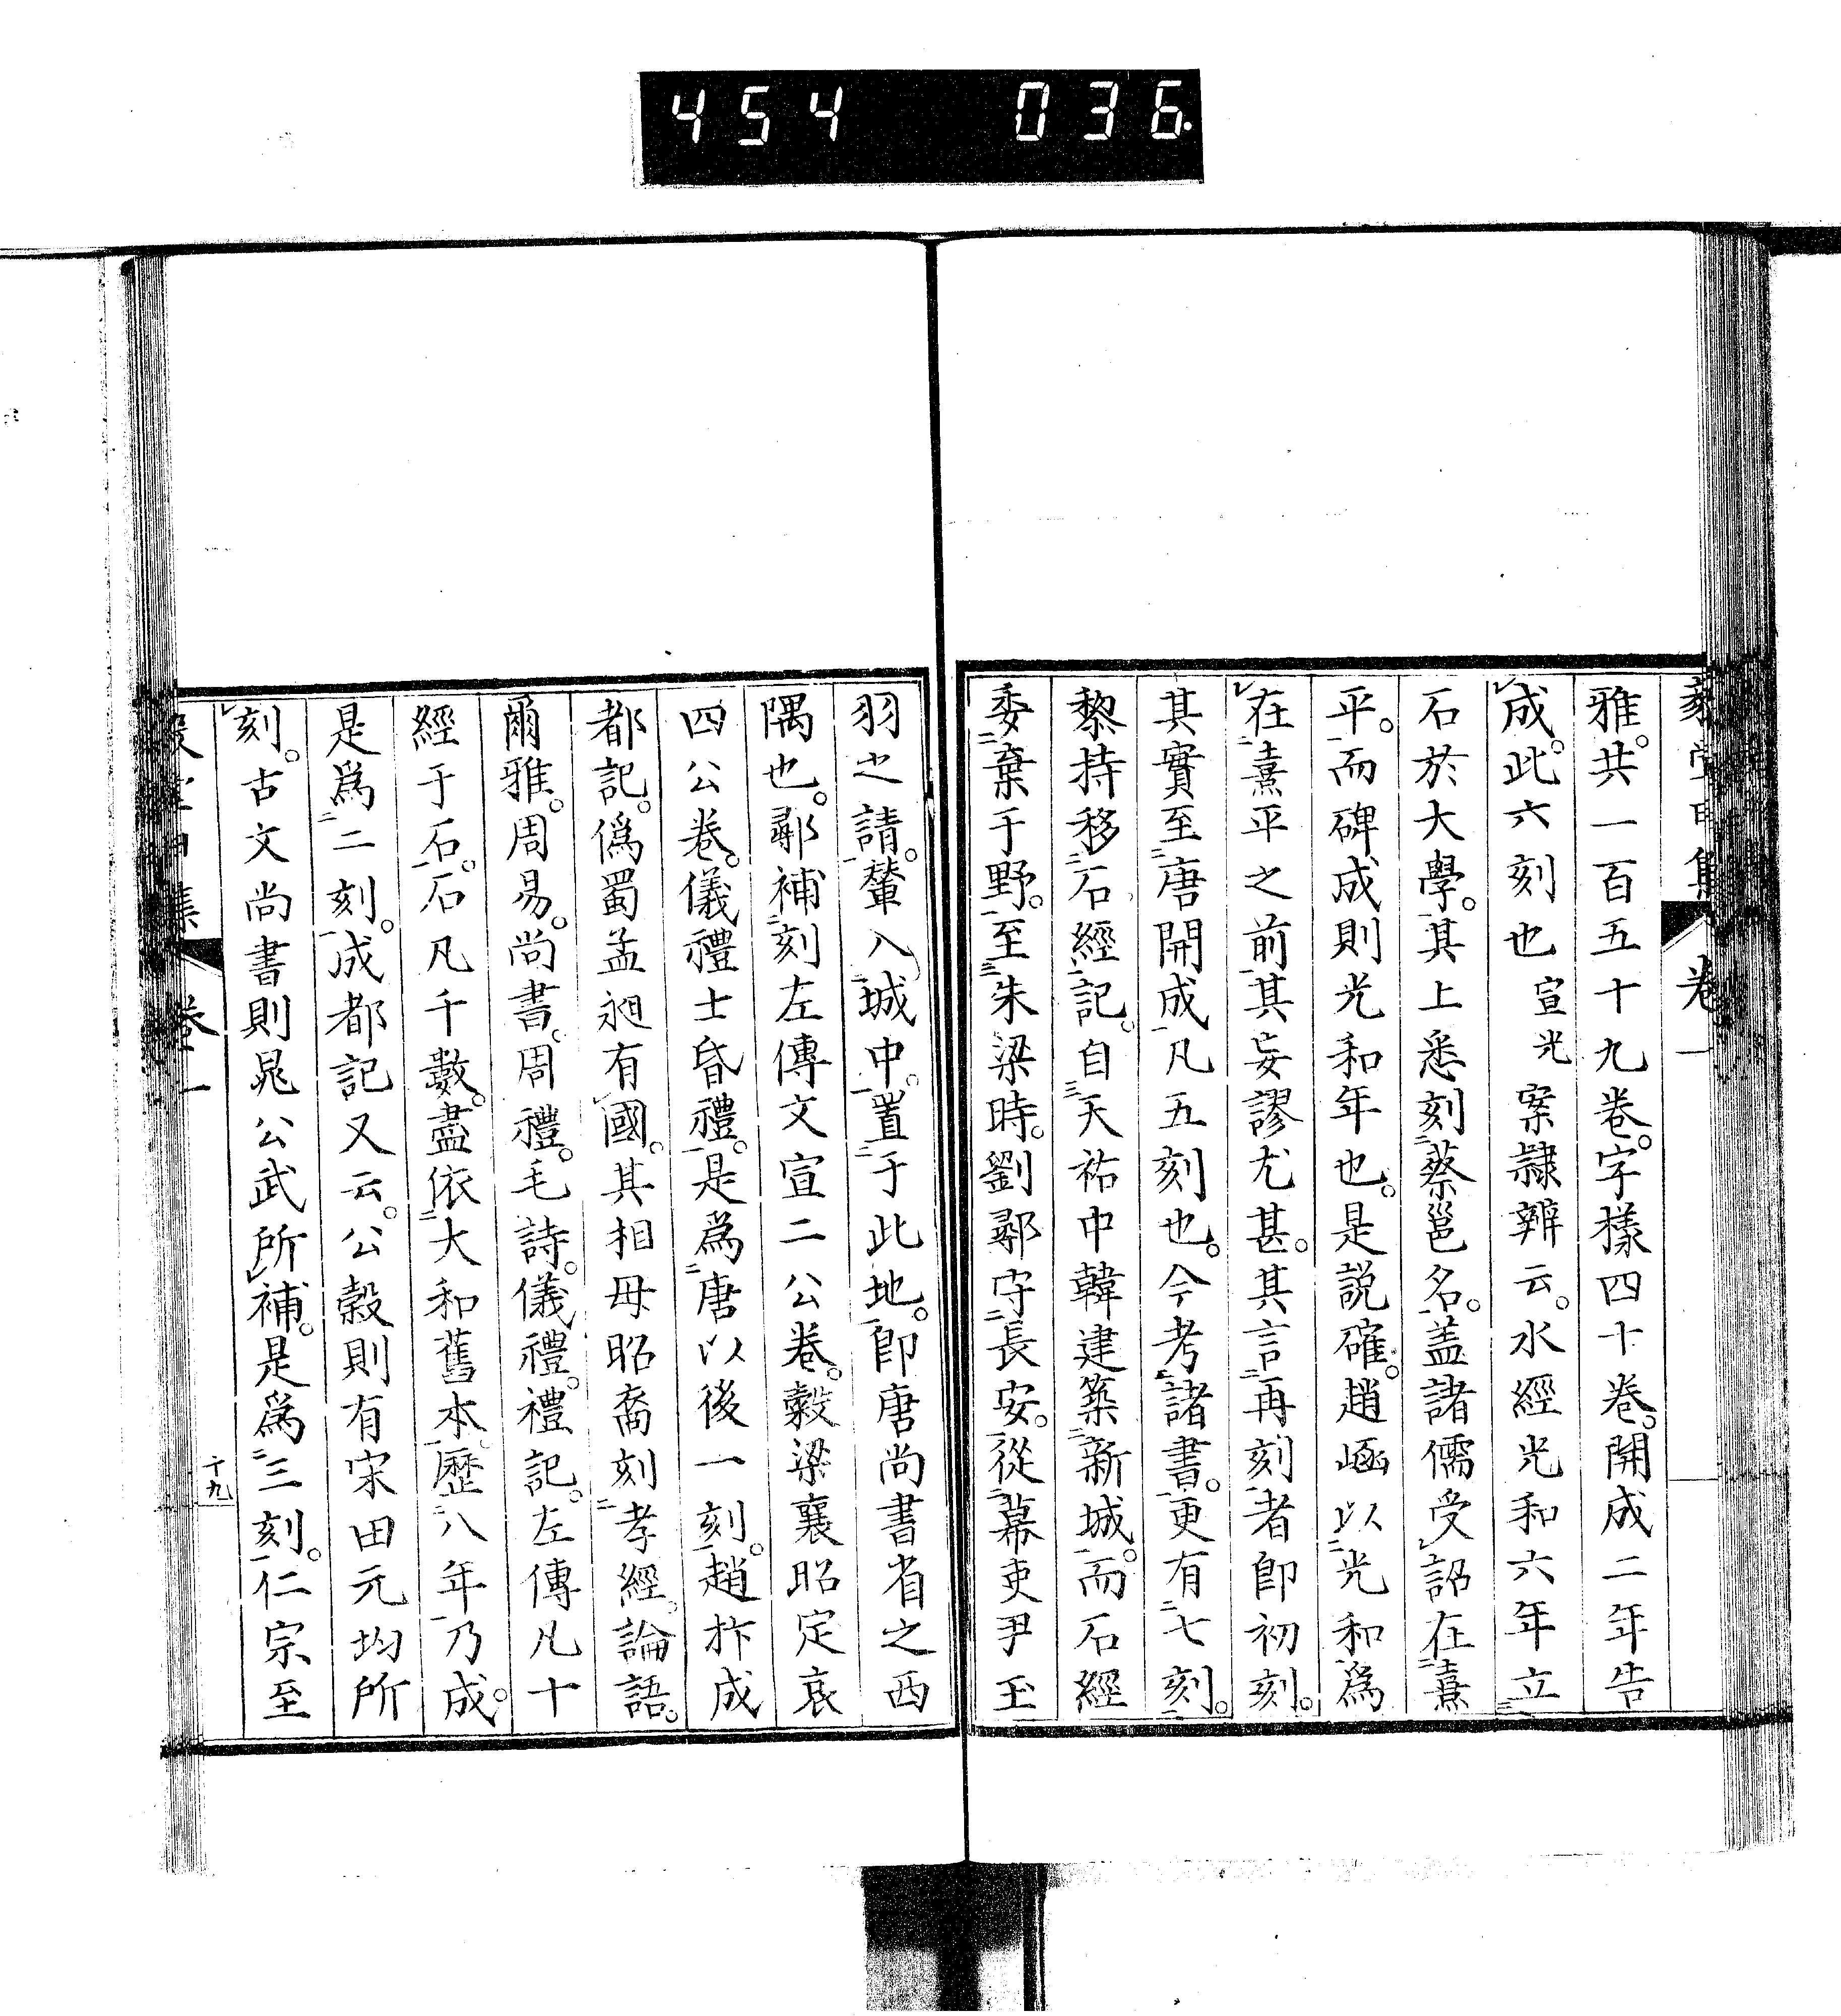 454 036
卷一
雅。共一百五十九卷。字樣四十卷。開成二年告
成。此六刻也宣光案隸辨云。水經光和六年立
石於大學。其上悉刻蔡邕名。盖諸儒受詔在熹
平。而碑成則光和年也。是說確。趙凾以光和爲
在熹平之前。其妄謬尤甚。其言再刻者卽初刻。
其實至唐開成凡五刻也。今考諸書。更有七刻。
黎持移石經記。自天祐中韓建築新城。而石經
委棄于野。至朱梁時。劉鄩守長安。從幕吏尹玉
羽之請。輦入城中。置于此地。卽唐尚書省之西
隅也。鄩補刻左傳文宣二公卷。穀梁襄昭定哀
四公卷。儀禮士昏禮。是爲唐以後一刻。趙抃成
都記。僞蜀孟昶有國。其相母昭裔刻孝經。論語。
爾雅。周易。尚書。周禮。毛詩。儀禮。禮記。左傳凡十
經于石。石凡千數。盡依大和舊本。歷八年乃成。
是爲二刻。成都記又云。公穀則有宋田元均所
刻。古文尚書則晁公武所補。是爲三刻。仁宗至
卷一
十九